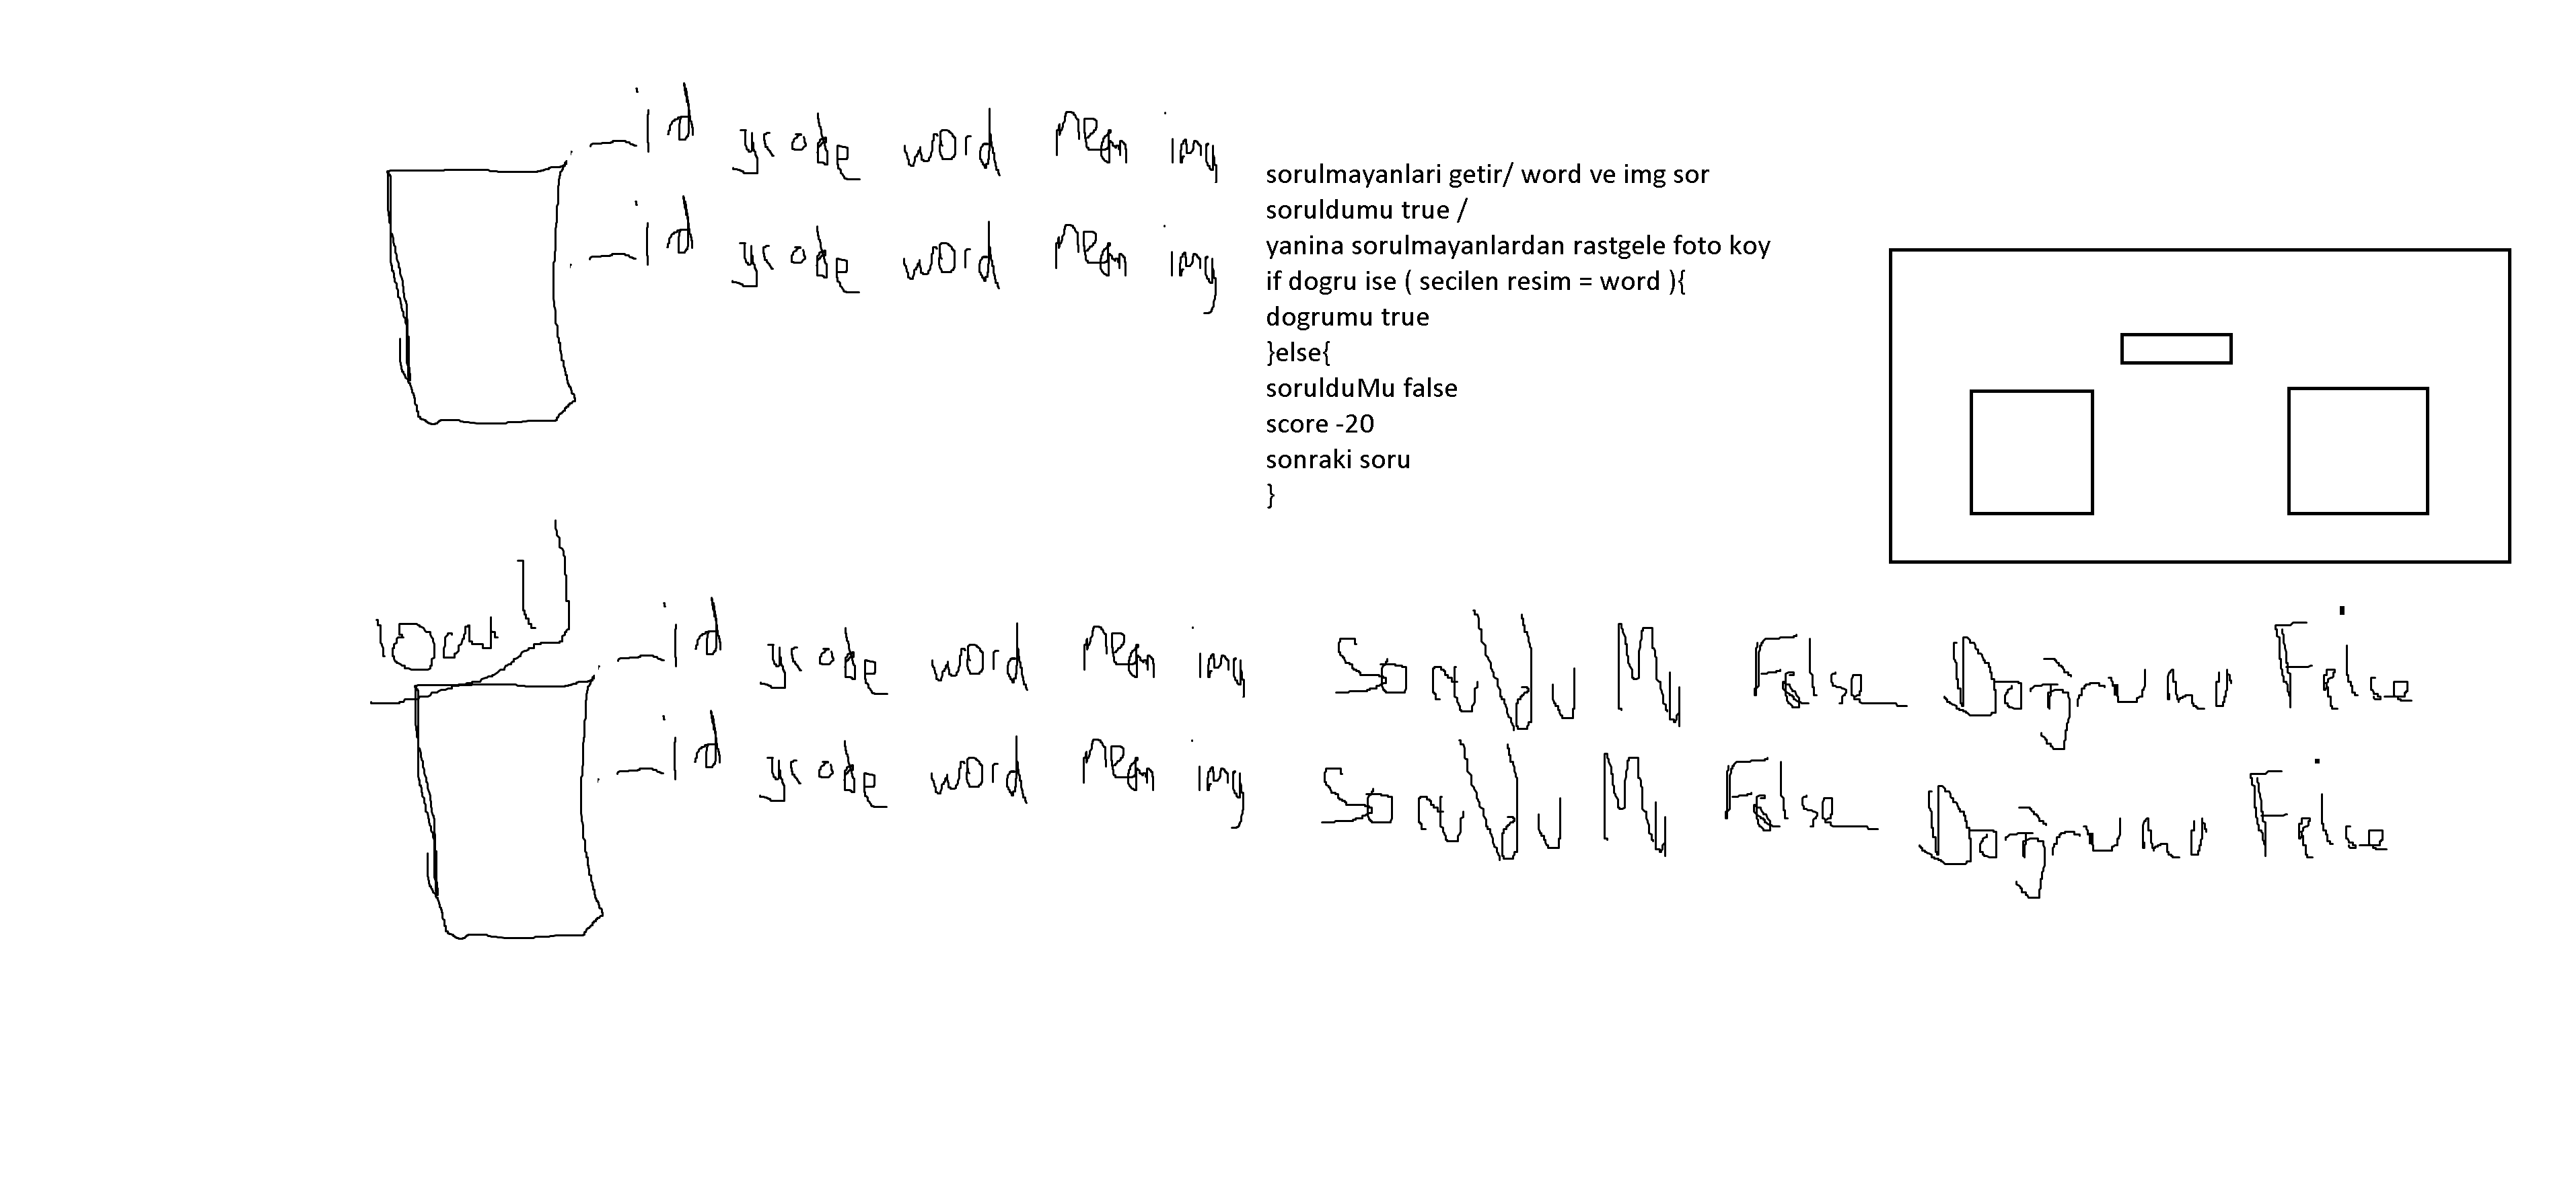 _id grade word mean img
_id grade word mean img
sorulmayanlari getir/ word ve img sor
soruldumu true /
yanina sorulmayanlardan rastgele foto koy
if dogru ise ( secilen resim = word ){
dogrumu true
}else{
sorulduMu false
score -20
sonraki soru
}
_id grade word mean img Soruldu Mu False Doğrumu False
_id grade word mean img Soruldu Mu False Doğrumu False